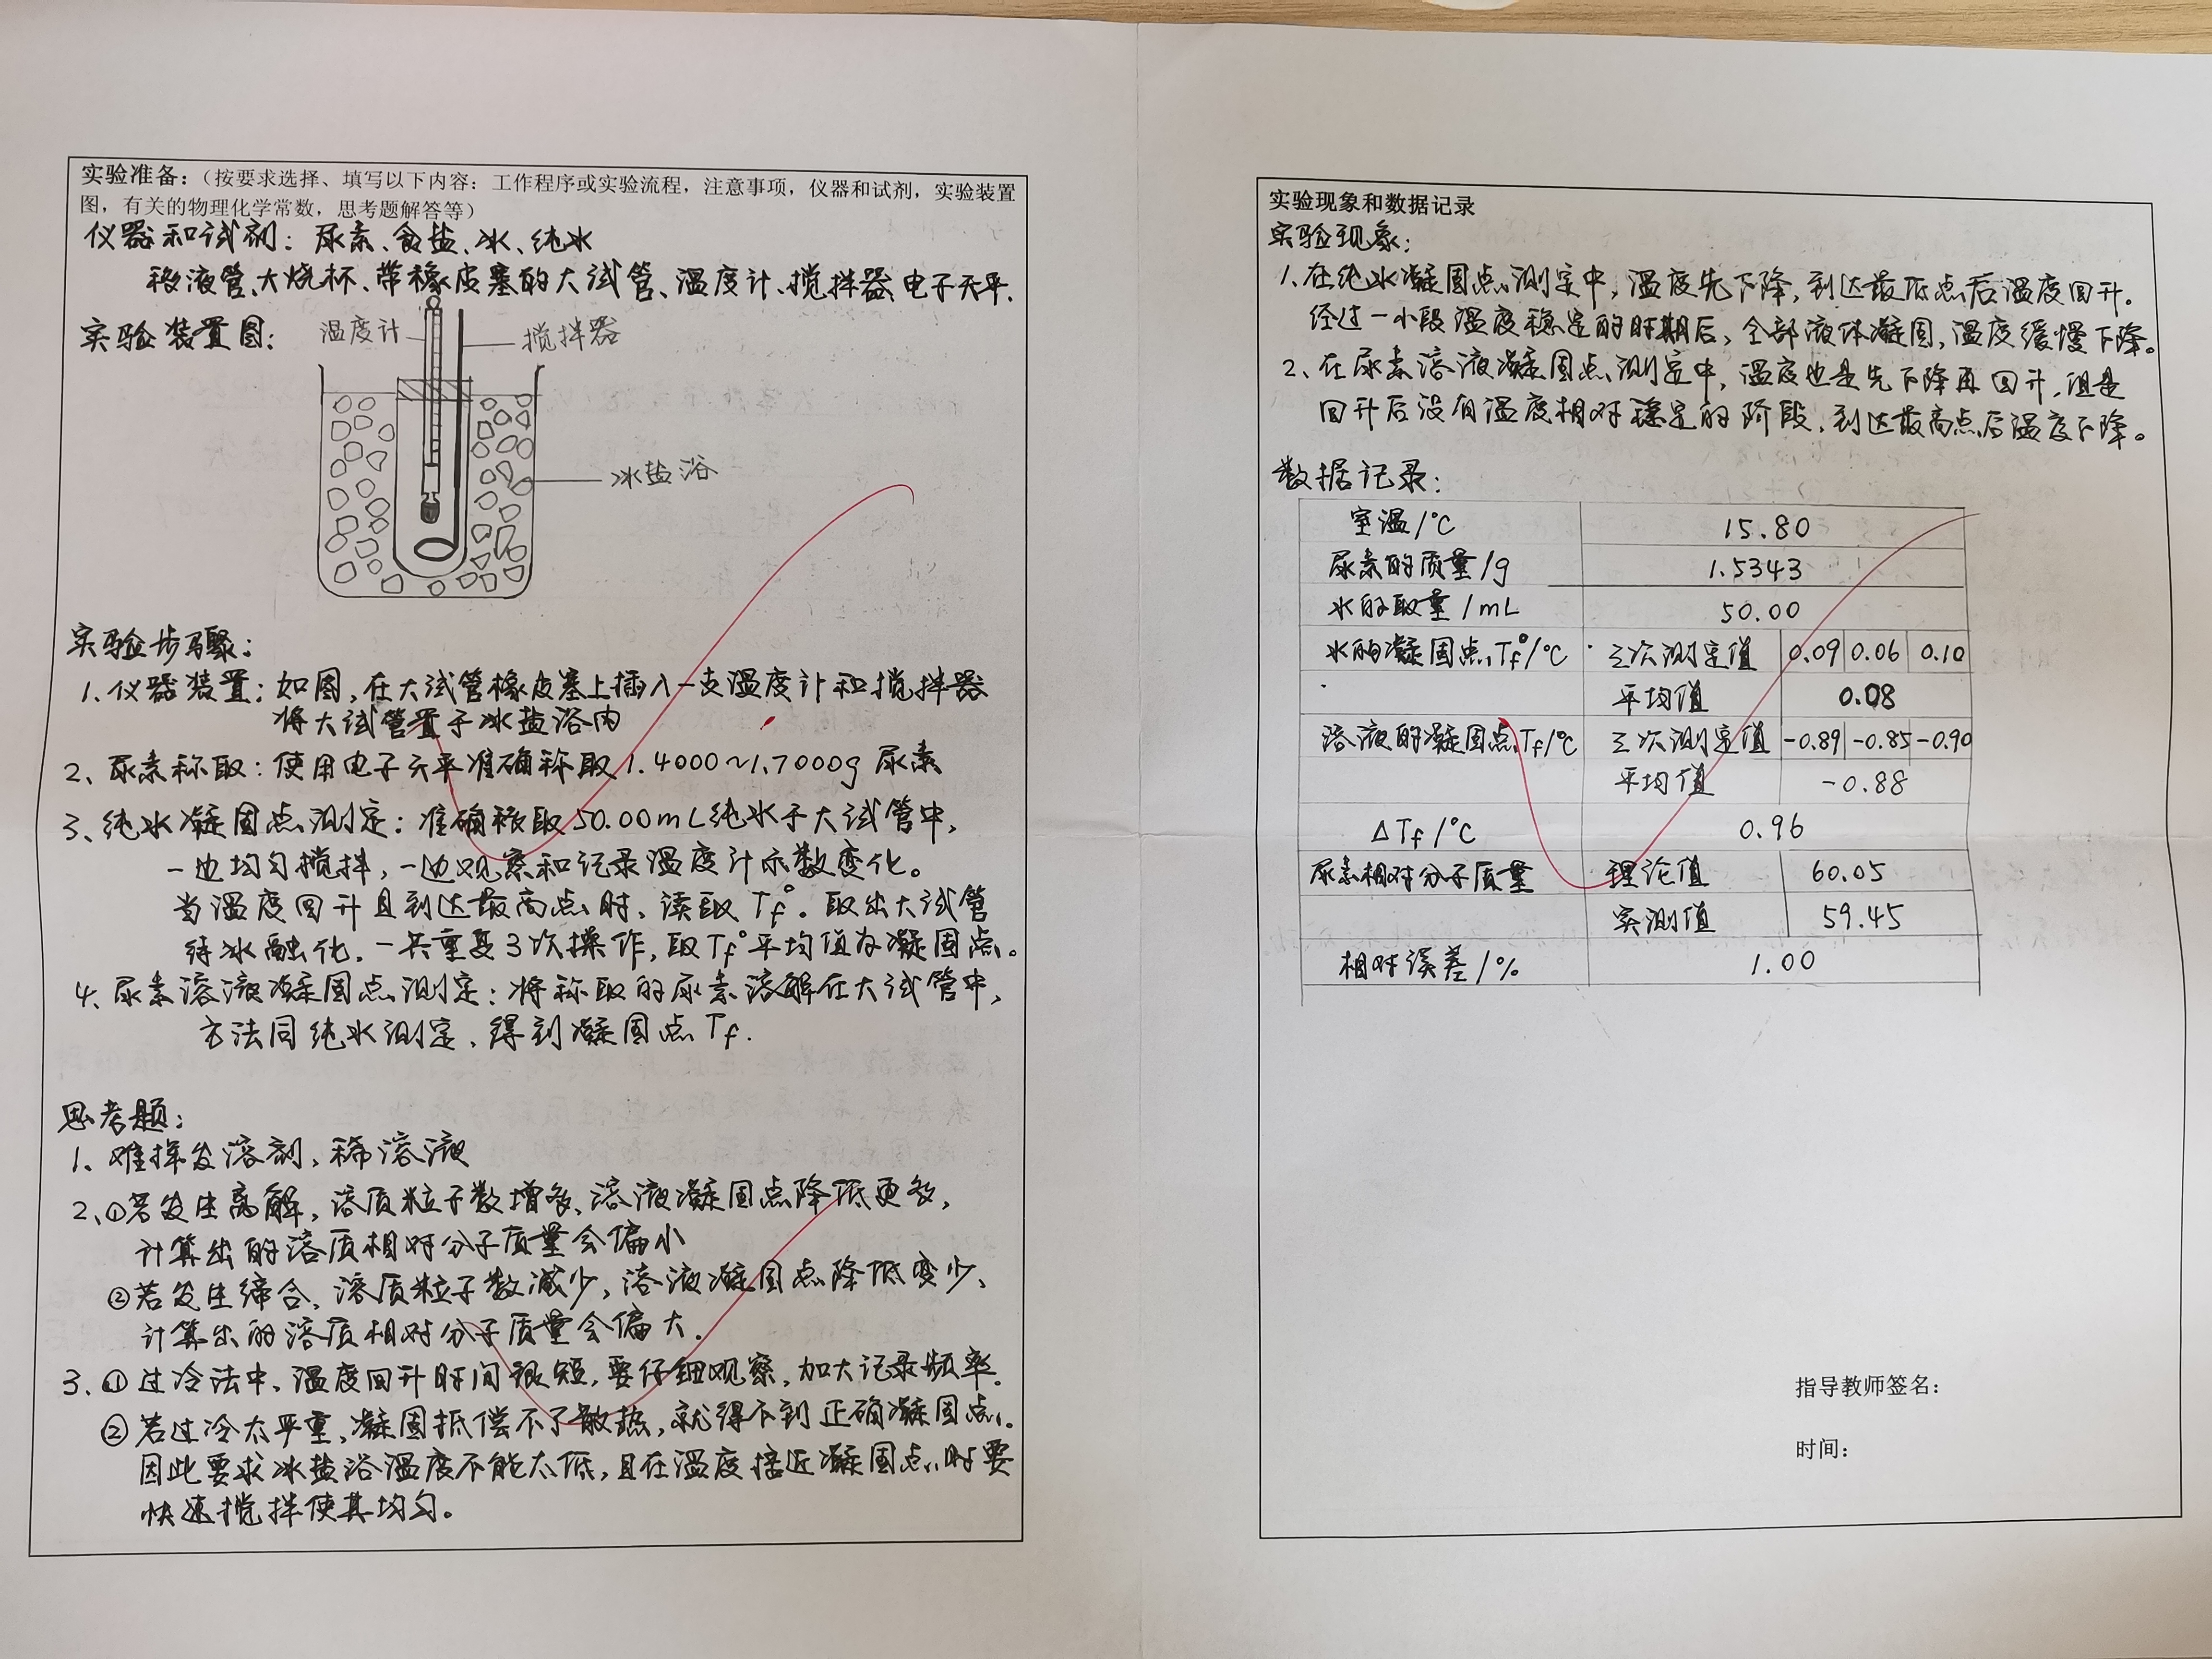 实验准备：（按要求选择、填写以下内容：工作程序或实验流程，注意事项，仪器和试剂，实验装置
图，有关的物理化学常数，思考题解答等）
仪器和试剂：尿素、食盐、冰、纯水
移液管、大烧杯、带橡皮塞的大试管、温度计、搅拌器、电子天平.
实验装置图：
温度计
搅拌器
冰盐浴
实验步骤：
1.仪器装置：如图，在大试管橡皮塞上插入一支温度计和搅拌器
将大试管置于冰盐浴内
2、尿素称取：使用电子天平准确称取1.4000~1.7000g 尿素
3、纯水凝固点测定：准确移取50.00mL纯水于大试管中，
一边均匀搅拌，一边观察和记录温度计示数变化。
当温度回升且到达最高点时、读取Tf°。取出大试管
待冰融化，一共重复3次操作，取Tf°平均值为凝固点。
4、尿素溶液凝固点测定：将称取的尿素溶解在大试管中，
方法同纯水测定、得到凝固点Tf.
思考题：
1、难挥发溶剂、稀溶液
2、①若发生离解，溶质粒子数增多、溶液凝固点降低更多，
计算出的溶质相对分子质量会偏小
②若发生缔合、溶质粒子数减少，溶液凝固点降低变少、
计算出的溶质相对分子质量会偏大.
3、①过冷法中、温度回升时间很短，要仔细观察，加大记录频率.
②若过冷太严重，凝固抵偿不了散热，就得不到正确凝固点.
因此要求冰盐浴温度不能太低，且在温度接近凝固点时要
快速搅拌使其均匀。
实验现象和数据记录
实验现象：
1.在纯水凝固点测定中，温度先下降，到达最低点后温度回升。
经过一小段温度稳定的时期后，全部液体凝固，温度缓慢下降。
2、在尿素溶液凝固点测定中，温度也是先下降再回升，但是
回升后没有温度相对稳定的阶段，到达最高点后温度下降。
数据记录：
室温/°C 15.80
尿素的质量/g 1.5343
水的取量/mL 50.00
水的凝固点Tf°/°C 三次测定值 0.09 0.06 0.10
平均值 0.08
溶液的凝固点Tf/°C 三次测定值 -0.89 -0.85 -0.90
平均值 -0.88
ΔTf/°C 0.96
尿素相对分子质量 理论值 60.05
实测值 59.45
相对误差/% 1.00
指导教师签名：
时间：